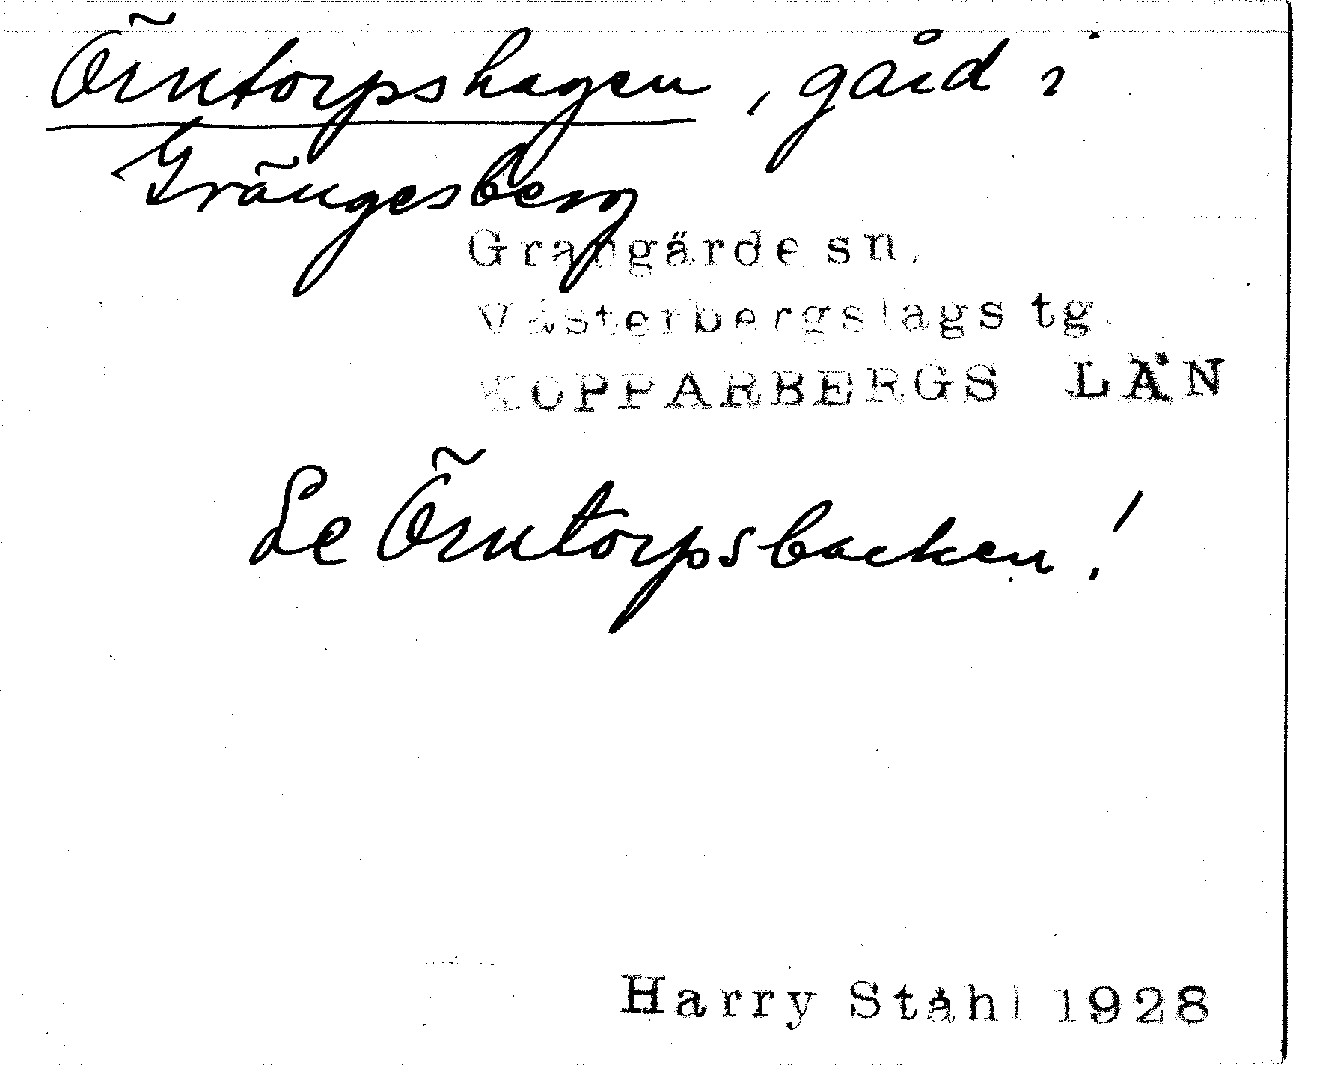 Örntorpshagen, gård i
Grängesberg
Grangärde sn.
Västerbergslags tg.
KOPPARBERGS LÄN
Se Örntorpsbacken!
Harry Ståhl 1928